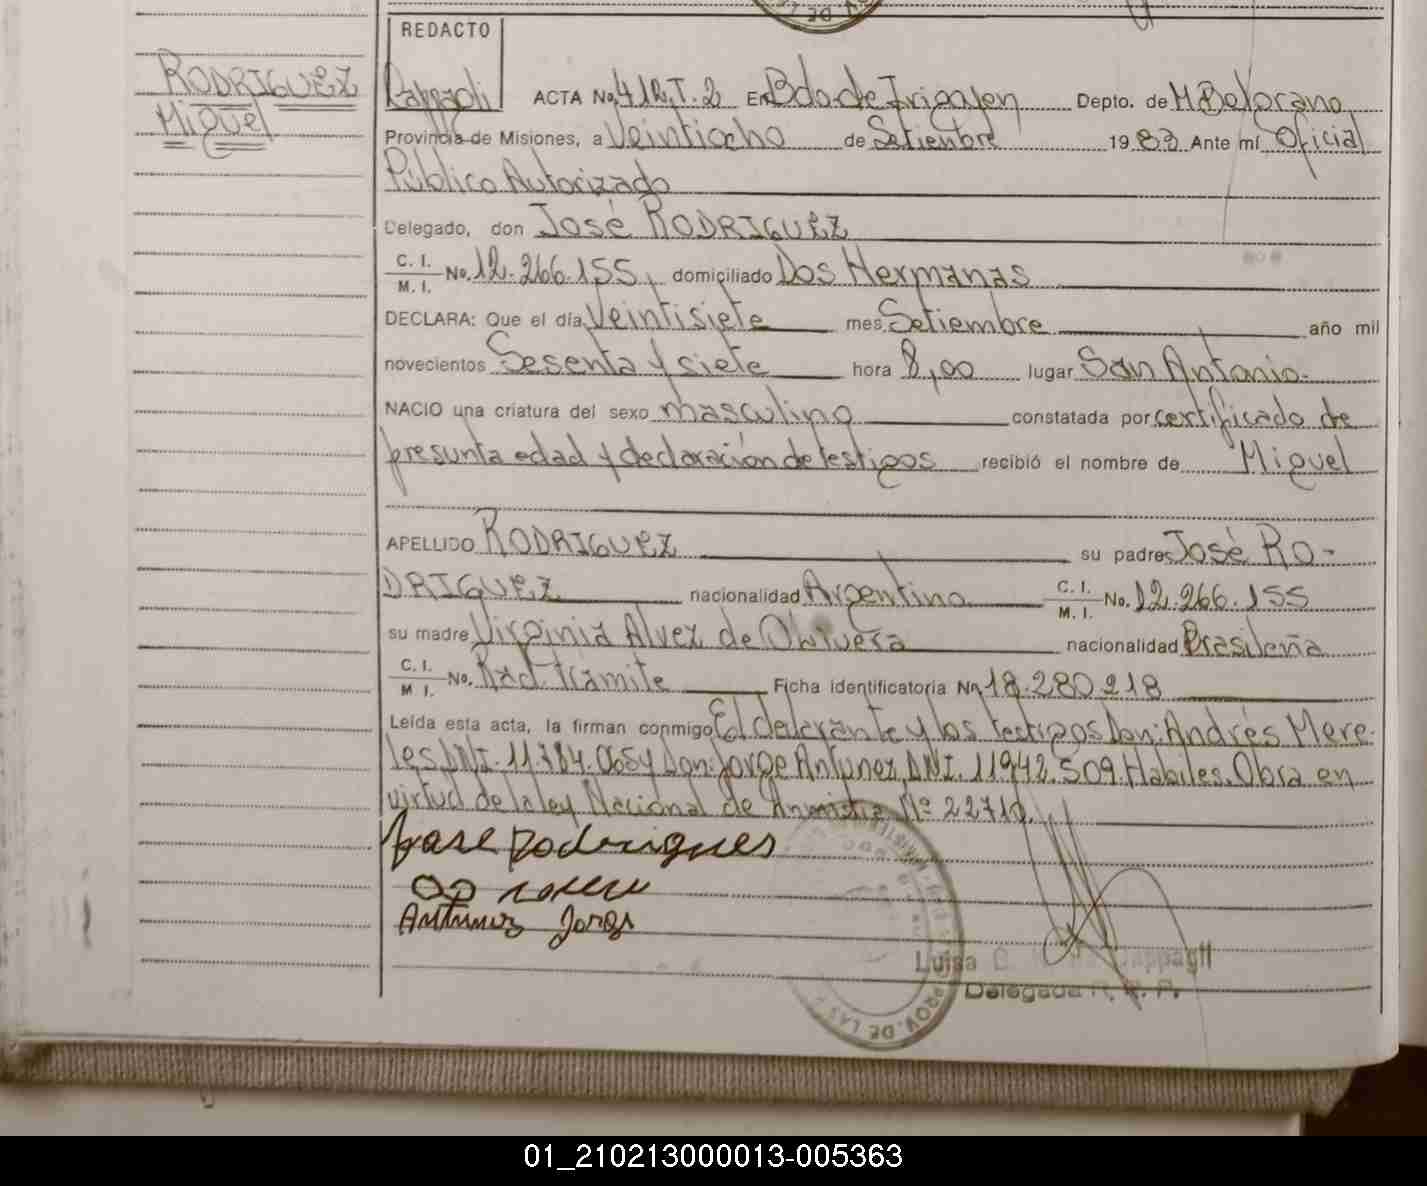 REDACTO
RODRIGUEZ
Miguel
Cappagli ACTA No. 412, T. 2 En Bdo. de Irigoyen Depto. de M Belgrano
Provincia de Misiones, a Veintiocho de Setiembre 1983 Ante mí Oficial
Público Autorizado
Delegado, don José RODRIGUEZ
C. I.
M. I. No. 12.266.155, domiciliado Dos Hermanas
DECLARA: Que el día Veintisiete mes Setiembre año mil
novecientos Sesenta y siete hora 8,00 lugar San Antonio.
NACIO una criatura del sexo masculino constatada por certificado de
presunta edad y declaración de testigos recibió el nombre de Miguel
APELLIDO RODRIGUEZ su padre José RO-
DRIGUEZ nacionalidad Argentino C. I.
M. I. No. 12.266.155
su madre Virginia Alvez de nacionalidad Brasileña
C. I.
M. I. No. Rad. trámite Ficha identificatoria No 18.280.218
Leída esta acta, la firman conmigo El declarante y los testigos Don: Andrés Mere-
les DNI. y Don: Jorge Antunez DNI. 11.942.509. Habiles. Obra en
virtud de la ley Nacional de Anmistia Nº 22710.
Jose Rodrigues
Antunez Jorge
Luisa Cappagli
Delegada R. P.
PROV. DE LAS
01_210213000013-005363